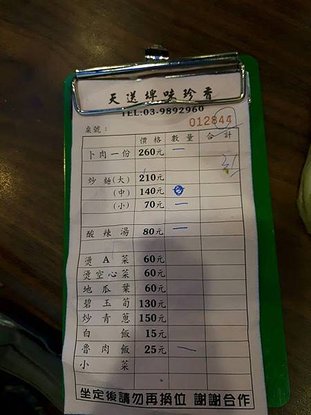 天送埤味珍香
TEL:03-9892960
桌號： 012844
價格 數量 合計
卜肉一份 260元 一
炒麵(大) 210元
(中) 140元
(小) 70元 一
酸辣湯 80元 一
燙A菜 60元
燙空心菜 60元
地瓜葉 60元
碧玉筍 130元
炒青蔥 150元
白飯 15元
魯肉飯 25元 一
小菜
坐定後請勿再換位 謝謝合作